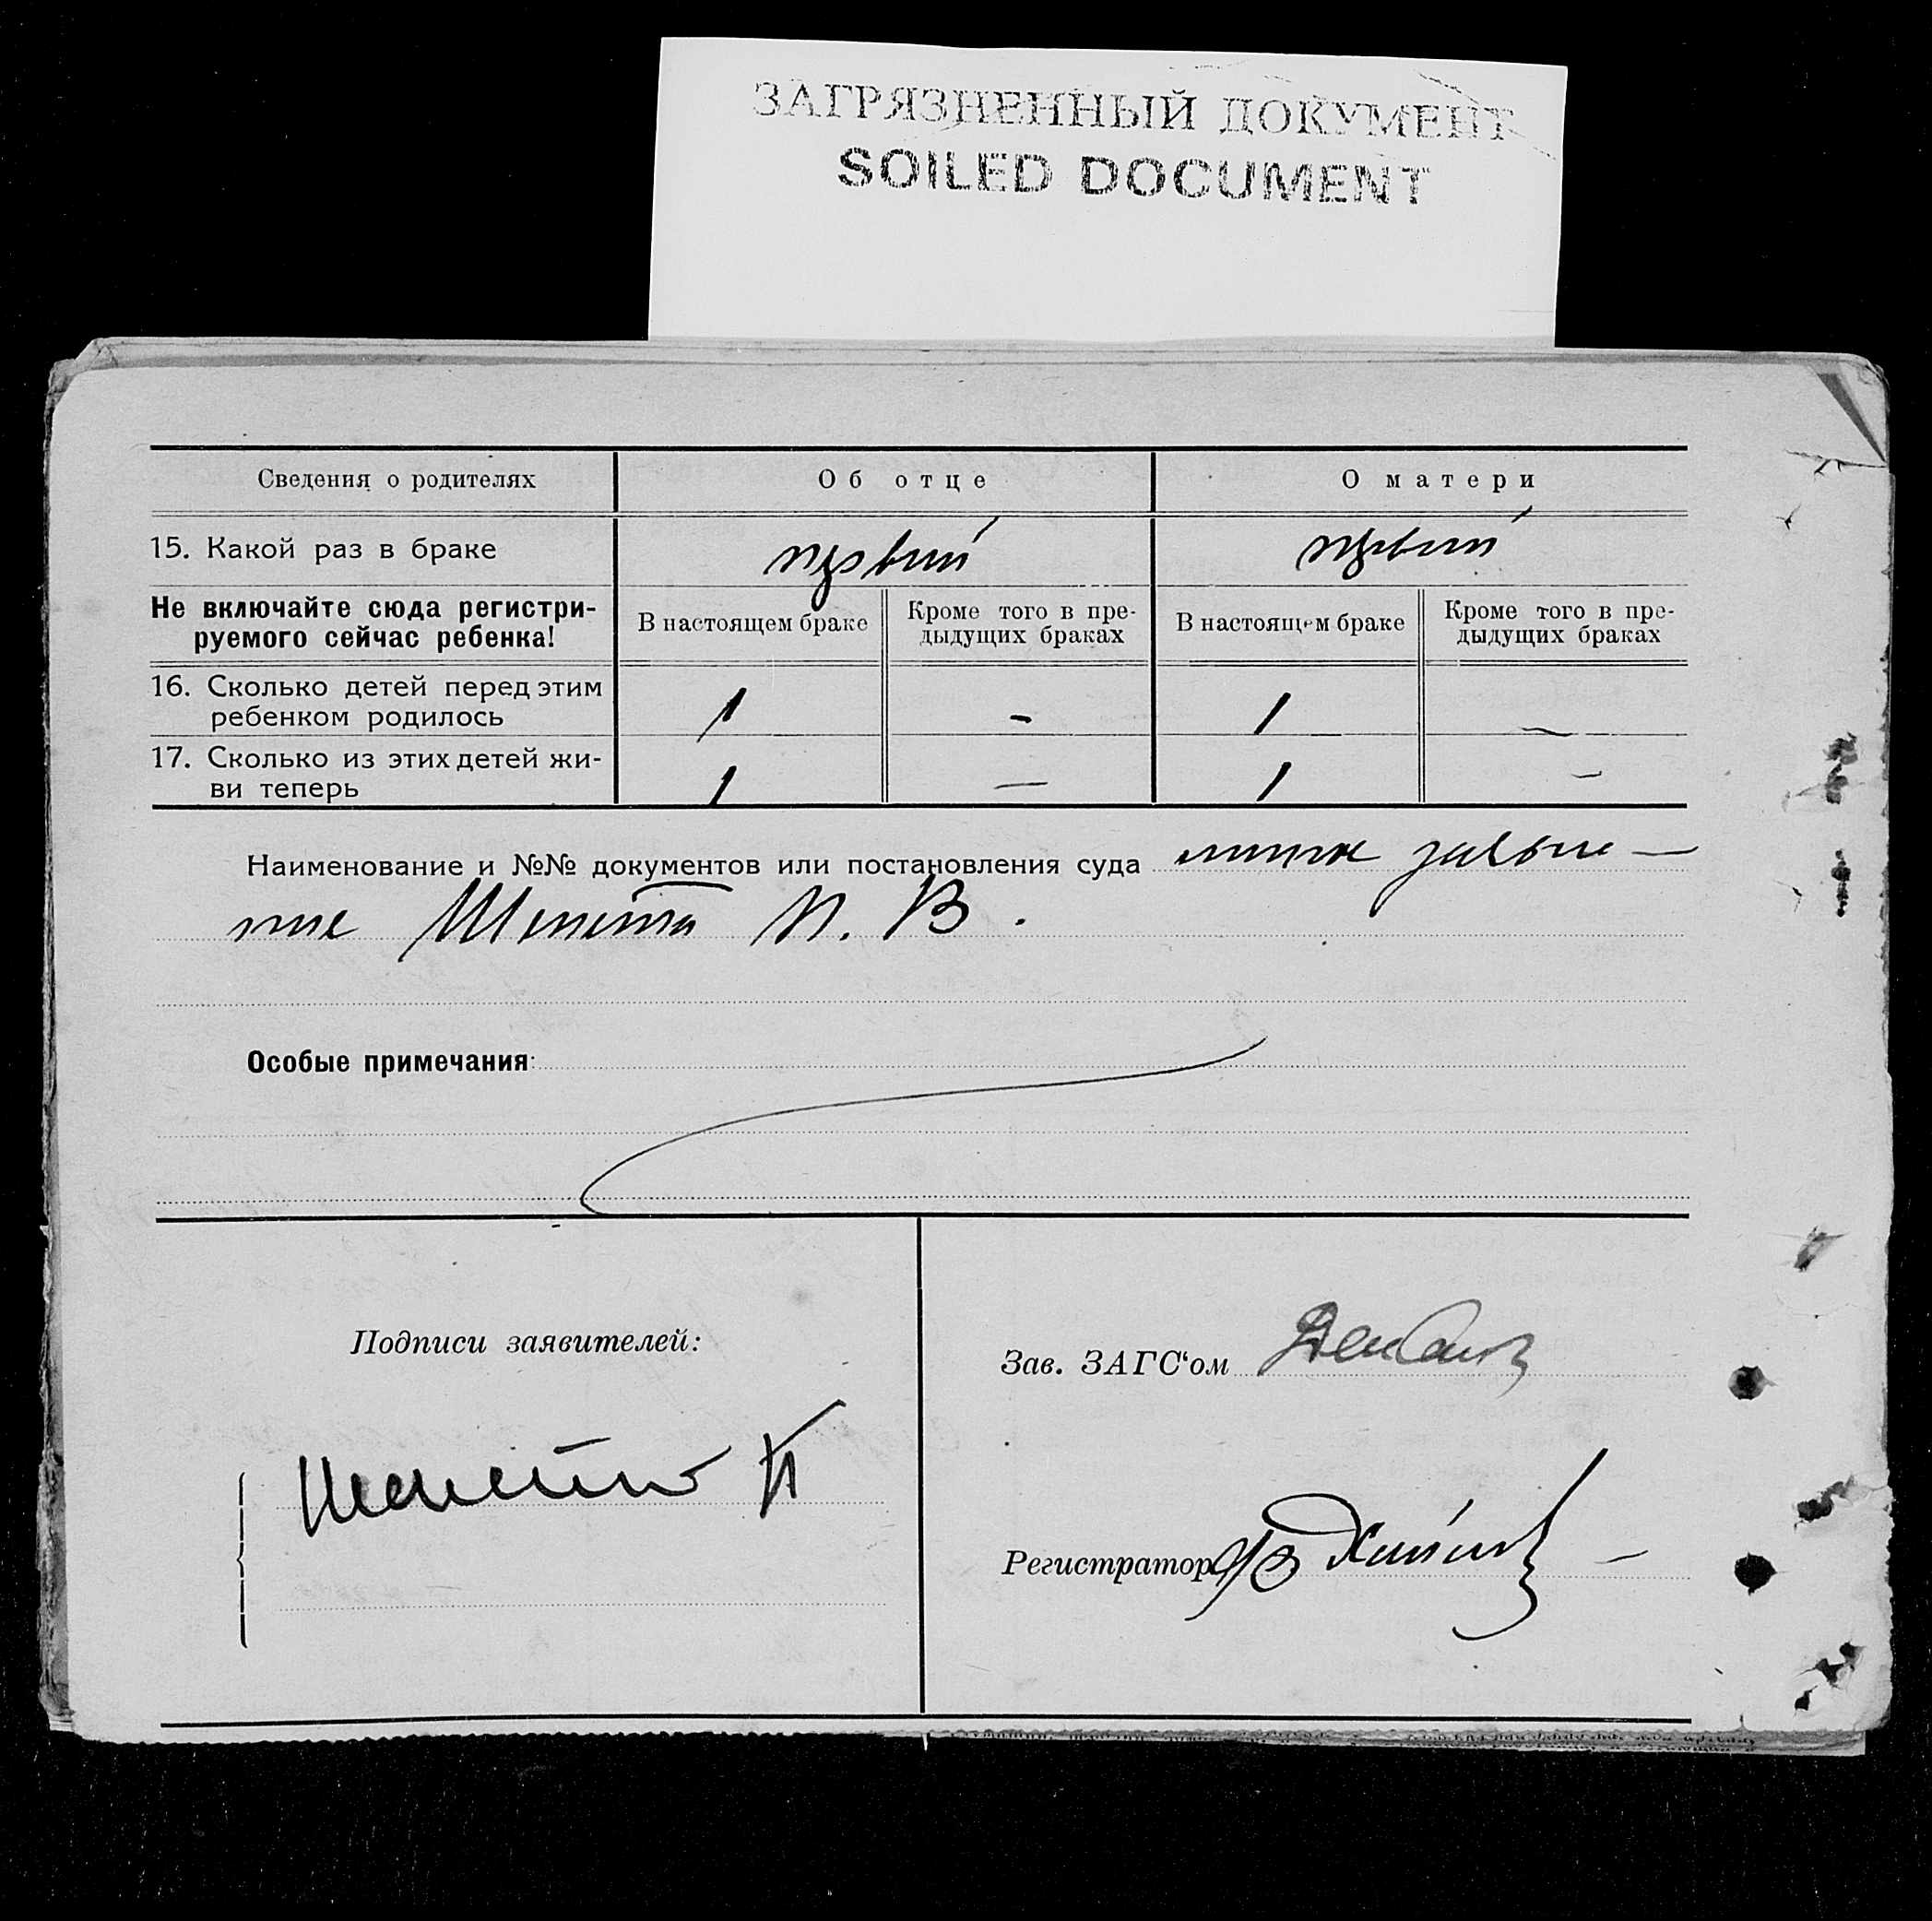 ЗАГРЯЗНЕННЫЙ ДОКУМЕНТ
SOILED DOCUMENT
Сведения о родителях Об отце О матери
15. Какой раз в браке первый первый
Не включайте сюда регистри-
руемого сейчас ребенка!
В настоящем браке
Кроме того в пре-
дыдущих браках
В настоящем браке
Кроме того в пре-
дыдущих браках
16. Сколько детей перед этим
ребенком родилось 1 - 1 -
17. Сколько из этих детей жи-
ви теперь 1 - 1 -
Наименование и №№ документов или постановления суда личное заявле-
ние Шепета П. В.
Особые примечания:
Подписи заявителей:
Зав. ЗАГС‘ом
Шепета П
Регистратор